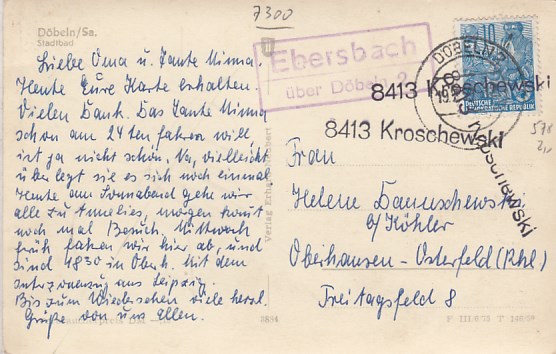 7300
Döbeln/Sa.
Stadtbad
Liebe Oma u. Tante Minna.
Heute Eure Karte erhalten.
Vielen Dank. Das Tante Minna
schon am 24ten fahren will
ist ja nicht schön. Na, vielleicht
überlegt sie es sich noch einmal
Heute am Sonnabend gehn wir
alle zu Amelies, morgen kommt
noch mal Besuch. Mittwoch
früh fahren wir hier ab, und
sind 1830 in Oberh. Mit dem
aus Leipzig.
Bis zum Wiedersehen viele herzl.
Grüße von uns Allen.
Verlag Erhard Neubert
3834
Ebersbach
über Döbeln 2
DÖBELN 2
DEUTSCHE
DEMOKRATISCHE REPUBLIK
8413 Kroschewski
8413 Kroschewski
Kroschewski
Frau
Helene
b/Köhler
Oberhausen-Osterfeld (Rhl)
Freitagsfeld 8